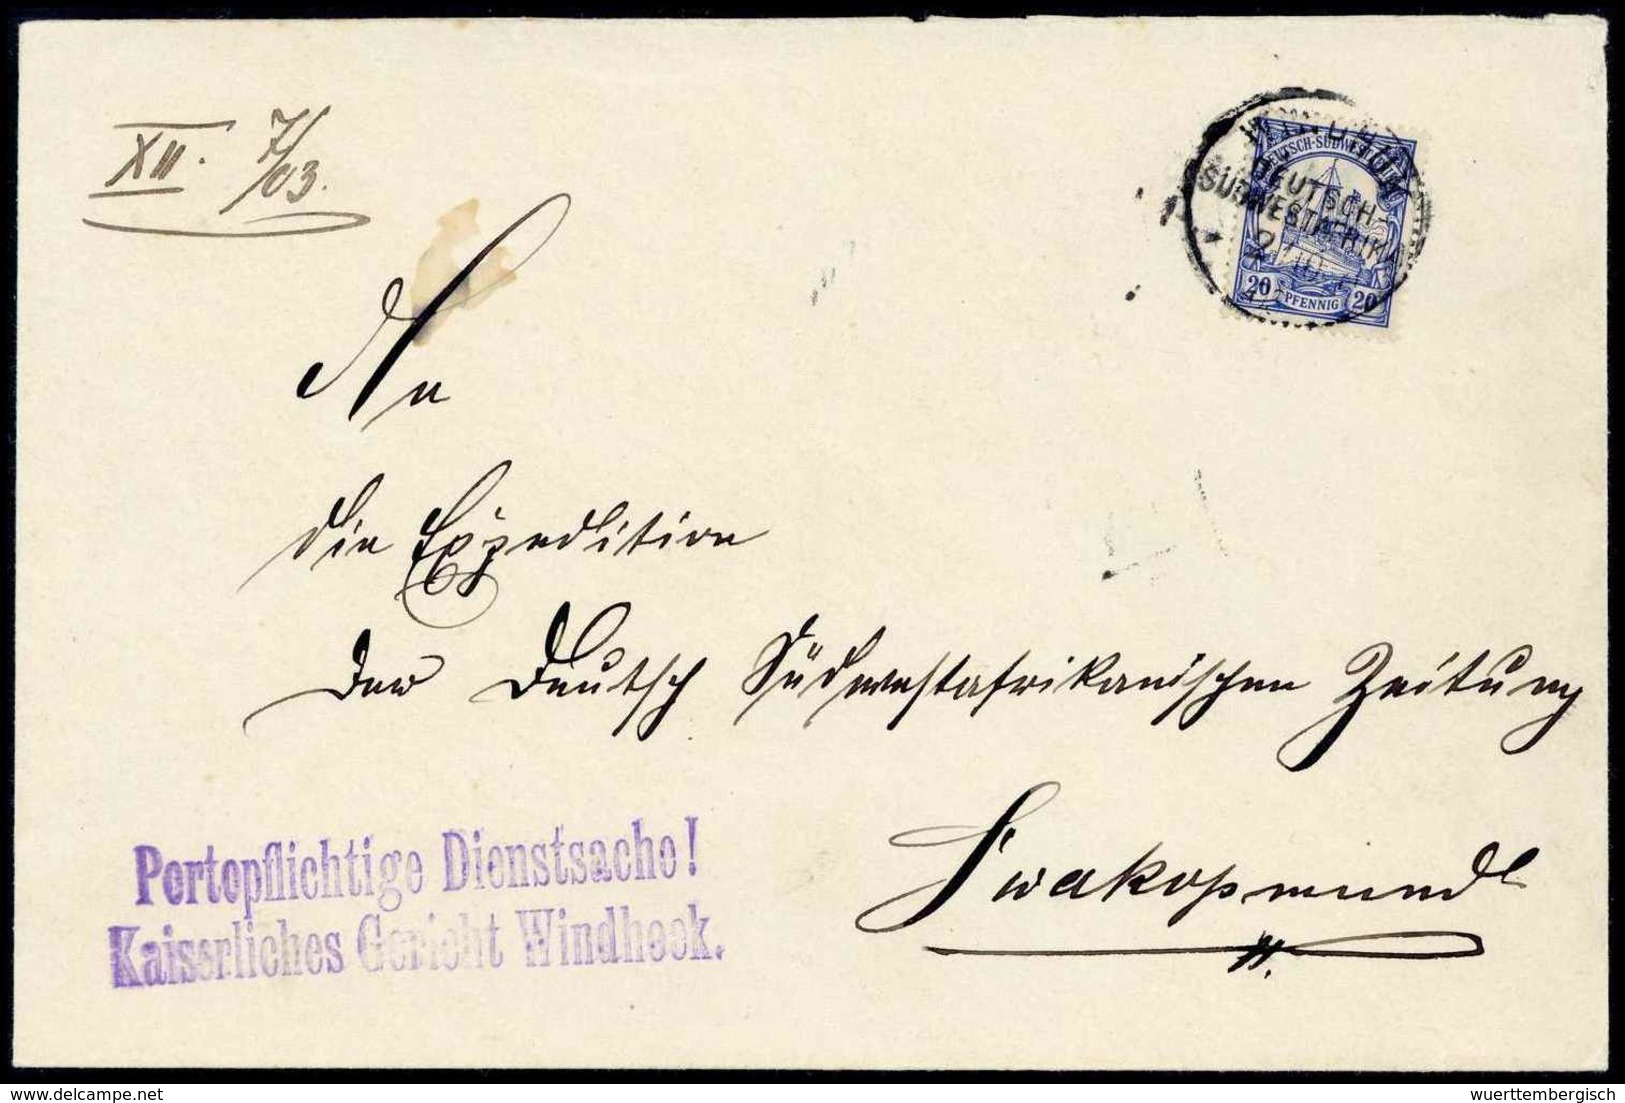 XII. 7/03.
DEUTSCH-SÜDWESTAFRIKA
DEUTSCH-
SÜDWESTAFRIKA
20 PFENNIG 20
An
die Expedition
der Deutsch Südwestafrikanischen Zeitung
Swakopmund
Portopflichtige Dienstsache!
Kaiserliches Gericht Windhoek.
wuerttembergisch